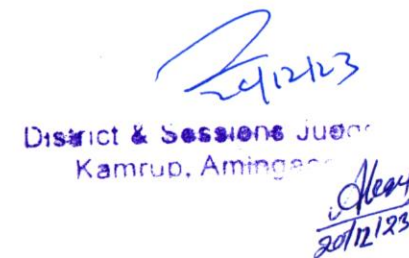 20/12/23
District & Sessions Judge
Kamrup, Aminga
20/12/23